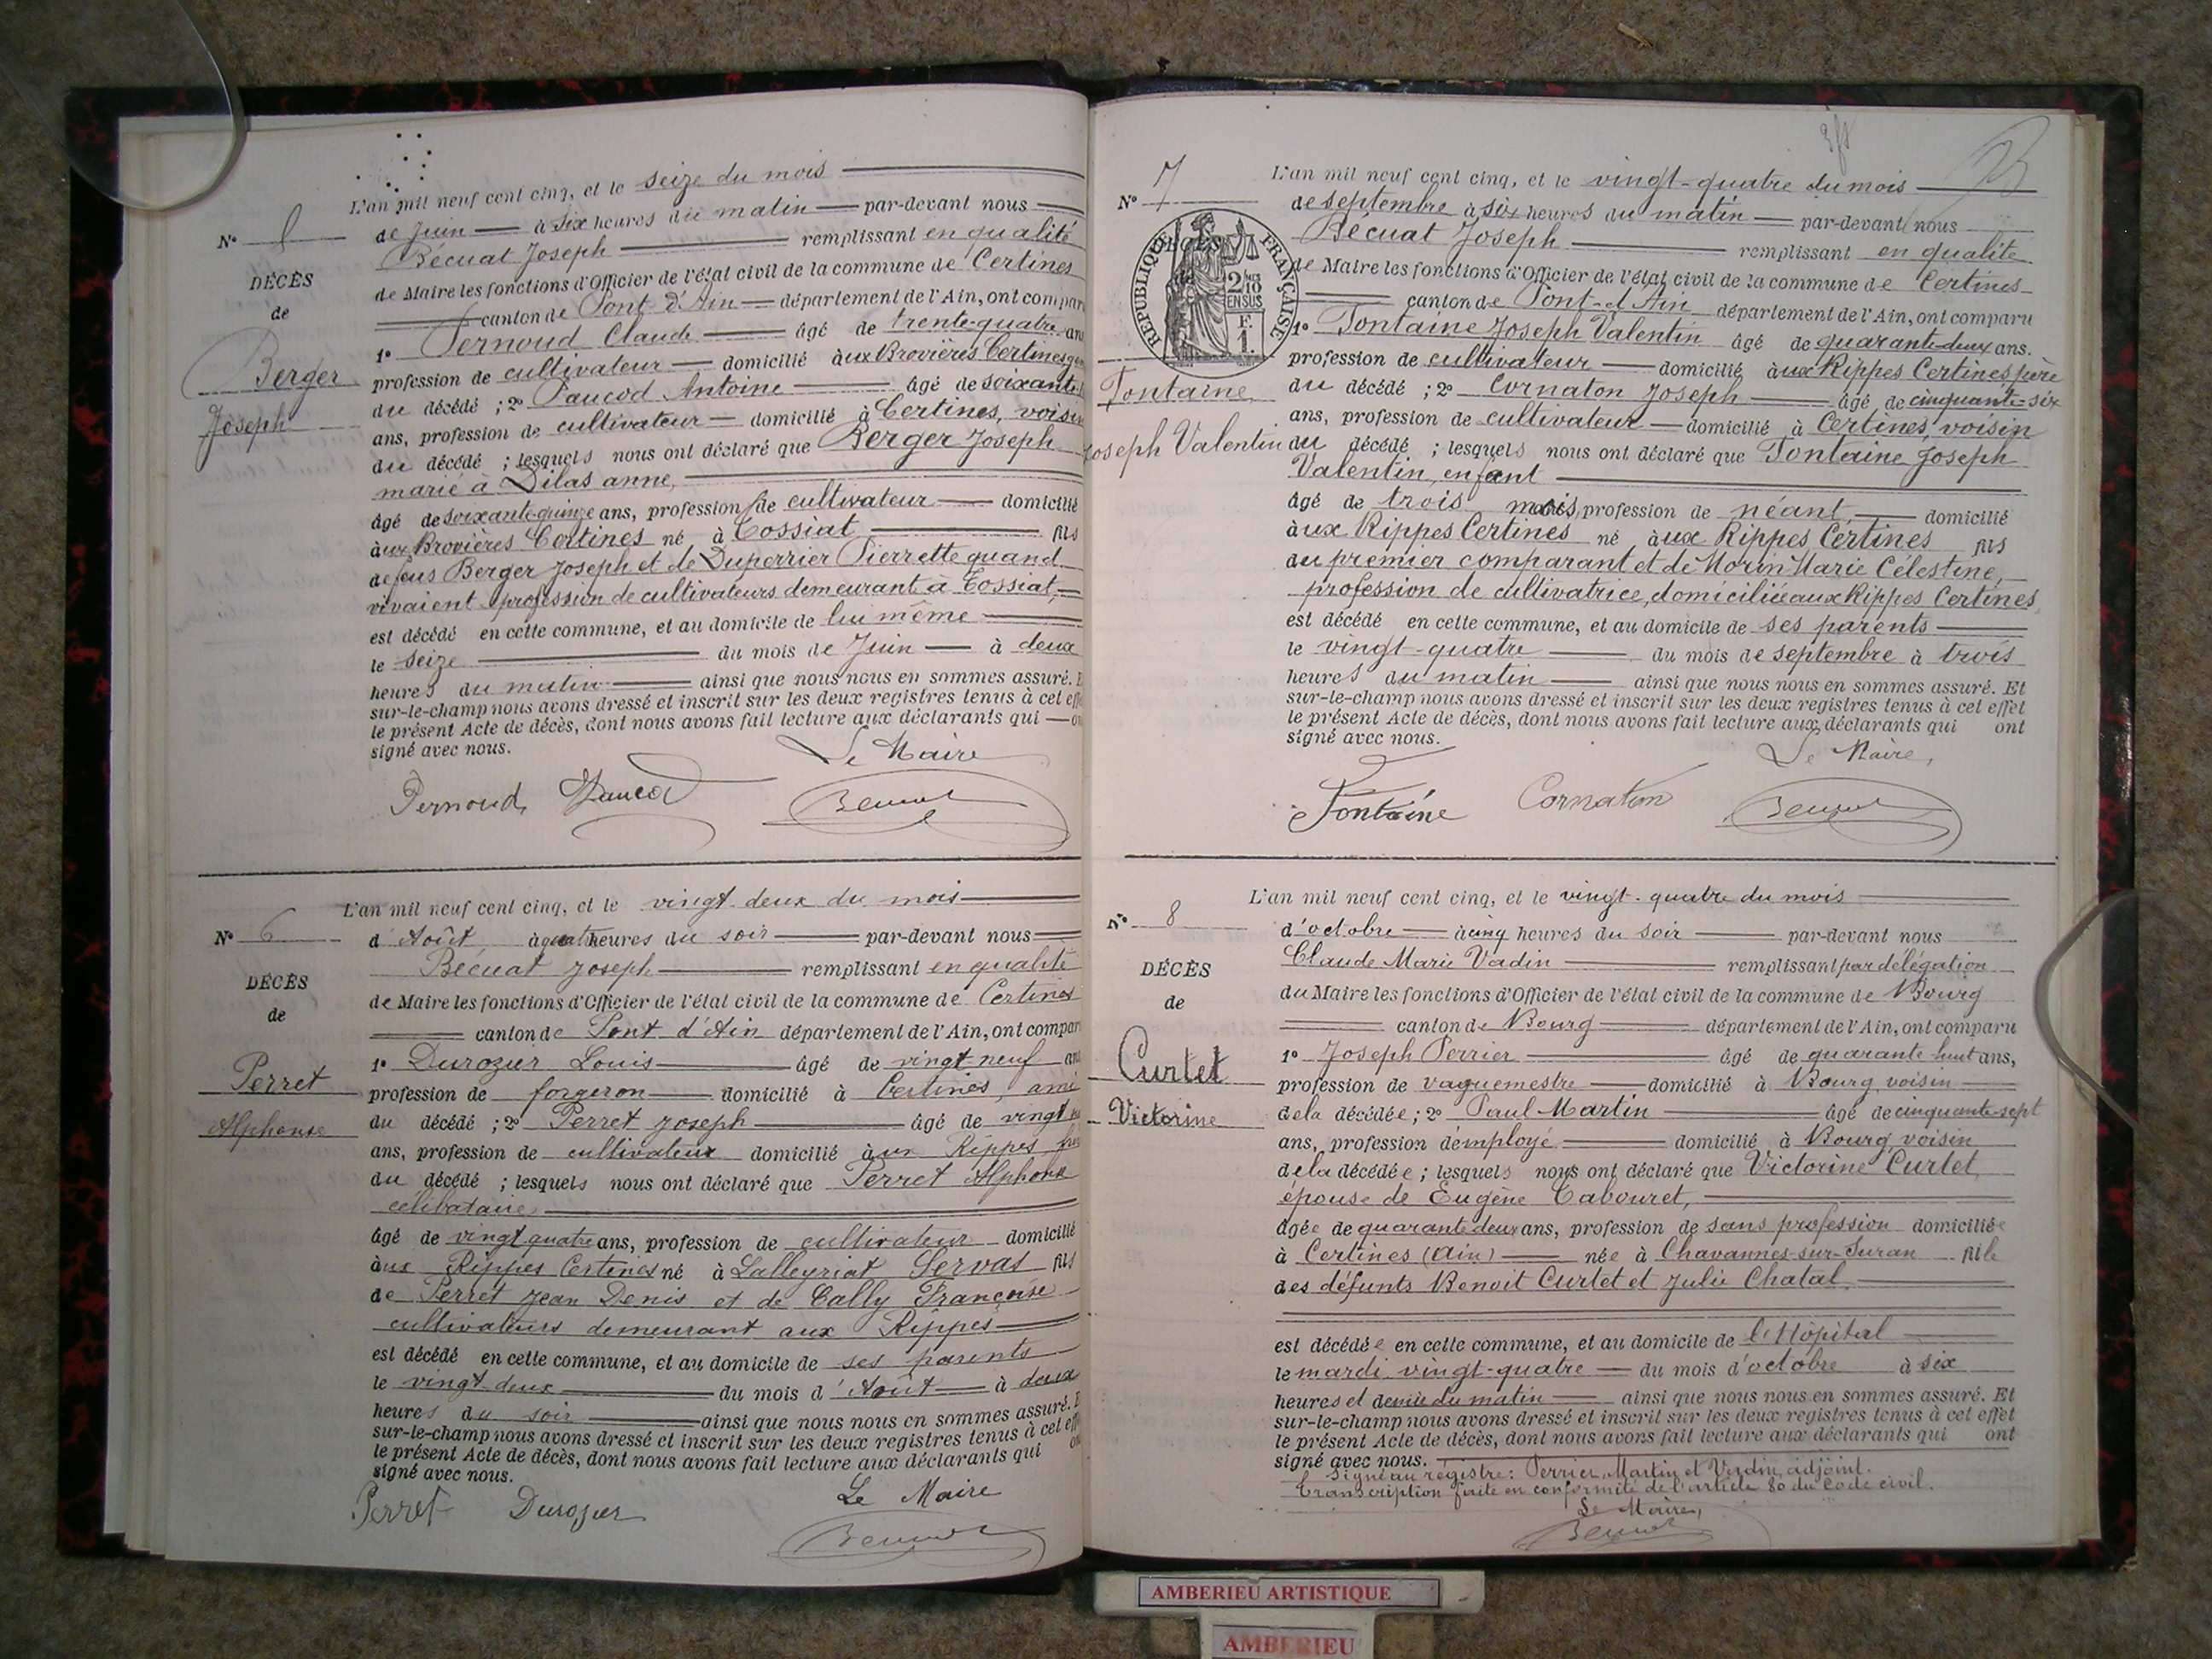 L'an mil neuf cent cinq, et le seize du mois
de Juin à Six heures du matin par-devant nous
Bécuat Joseph remplissant en qualité
de Maire les fonctions d'Officier de l'état civil de la commune de Certines
canton de Pont-d'Ain département de l'Ain, ont compar
1º Pernoud Claude âgé de trente-quatre ans
profession de cultivateur domicilié aux Brovières Certines
du décédé ; 2º Paucod Antoine âgé de soixante
ans, profession de cultivateur domicilié à Certines, voisin
du décédé ; lesquels nous ont déclaré que Berger Joseph
marié à Dilas anne,
âgé de soixante-quinze ans, profession de cultivateur domicilié
aux Brovières Certines né à Tossiat fils
de feus Berger Joseph et de Duperrier Pierrette quand
vivaient profession de cultivateurs demeurant à Tossiat,
est décédé en cette commune, et au domicile de lui même
le seize du mois de Juin à deux
heures du matin ainsi que nous nous en sommes assuré. E
sur-le-champ nous avons dressé et inscrit sur les deux registres tenus à cet effe
le présent Acte de décès, dont nous avons fait lecture aux déclarants qui on
signé avec nous.
Le Maire
Pernoud Paucod Bécuat
Nº
DÉCÈS
de
Berger
Joseph
L'an mil neuf cent cinq, et le vingt-deux du mois
Nº 6
d'Août à quatre heures du soir par-devant nous
Bécuat Joseph remplissant en qualité
DÉCÈS
de
de Maire les fonctions d'Officier de l'état civil de la commune de Certines
canton de Pont d'Ain département de l'Ain, ont compar
1º Durozier Louis âgé de vingt neuf an
Perret
profession de forgeron domicilié à Certines, ami
Alphonse
du décédé ; 2º Perret Joseph âgé de vingt
ans, profession de cultivateur domicilié aux Rippes
du décédé ; lesquels nous ont déclaré que Perret Alphonse
célibataire
âgé de vingt quatre ans, profession de cultivateur domicilié
aux Rippes Certines né à Lalleyriat Servas fils
de Perret Jean Denis et de Cally Françoise
cultivateurs demeurant aux Rippes
est décédé en cette commune, et au domicile de ses parents
le vingt-deux du mois d'Août à deux
heures du soir ainsi que nous nous en sommes assuré. E
sur-le-champ nous avons dressé et inscrit sur les deux registres tenus à cet eff
le présent Acte de décès, dont nous avons fait lecture aux déclarants qui on
signé avec nous.
Le Maire
Perret Durozier Bécuat
L'an mil neuf cent cinq, et le vingt-quatre du mois
Nº 7
de septembre à six heures du matin par-devant nous
Bécuat Joseph remplissant en qualité
de Maire les fonctions d'Officier de l'état civil de la commune de Certines
canton de Pont-d'Ain département de l'Ain, ont comparu
RÉPUBLIQUE FRANÇAISE
2/10
EN SUS
F.
1.
1º Fontaine Joseph Valentin âgé de quarante-deux ans.
profession de cultivateur domicilié aux Rippes Certines, père
Fontaine
Joseph Valentin
du décédé ; 2º Cornaton Joseph âgé de cinquante-six
ans, profession de cultivateur domicilié à Certines, voisin
du décédé ; lesquels nous ont déclaré que Fontaine Joseph
Valentin, enfant
âgé de trois mois, profession de néant domicilié
aux Rippes Certines né aux Rippes Certines fils
du premier comparant et de Morin Marie Célestine,
profession de cultivatrice, domiciliée aux Rippes Certines
est décédé en cette commune, et au domicile de ses parents
le vingt-quatre du mois de septembre à trois
heures du matin ainsi que nous nous en sommes assuré. Et
sur-le-champ nous avons dressé et inscrit sur les deux registres tenus à cet effet
le présent Acte de décès, dont nous avons fait lecture aux déclarants qui ont
signé avec nous.
Le Maire,
Fontaine Cornaton Bécuat
L'an mil neuf cent cinq, et le vingt-quatre du mois
Nº 8
d'octobre à cinq heures du soir par-devant nous
Claude Marie Vadin remplissant par délégation
DÉCÈS
de
du Maire les fonctions d'Officier de l'état civil de la commune de Bourg
canton de Bourg département de l'Ain, ont comparu
Curtet
Victorine
1º Joseph Perrier âgé de quarante-huit ans,
profession de vaguemestre domicilié à Bourg, voisin
de la décédée ; 2º Paul Martin âgé de cinquante-sept
ans, profession d'employé domicilié à Bourg, voisin
de la décédée ; lesquels nous ont déclaré que Victorine Curtet,
épouse de Eugène Cabouret,
âgée de quarante deux ans, profession de sans profession domiciliée
à Certines (Ain) née à Chavannes-sur-Suran fille
des défunts Benoit Curtet et Julie Chatal
est décédée en cette commune, et au domicile de l'Hôpital
le mardi vingt-quatre du mois d'octobre à six
heures et demie du matin ainsi que nous nous en sommes assuré. Et
sur-le-champ nous avons dressé et inscrit sur les deux registres tenus à cet effet
le présent Acte de décès, dont nous avons fait lecture aux déclarants qui ont
signé avec nous.
Signé au registre : Perrier, Martin et Verdin, adjoint.
Transcription faite en conformité de l'article 80 du code civil.
Le Maire,
Bécuat
AMBERIEU ARTISTIQUE
AMBERIEU